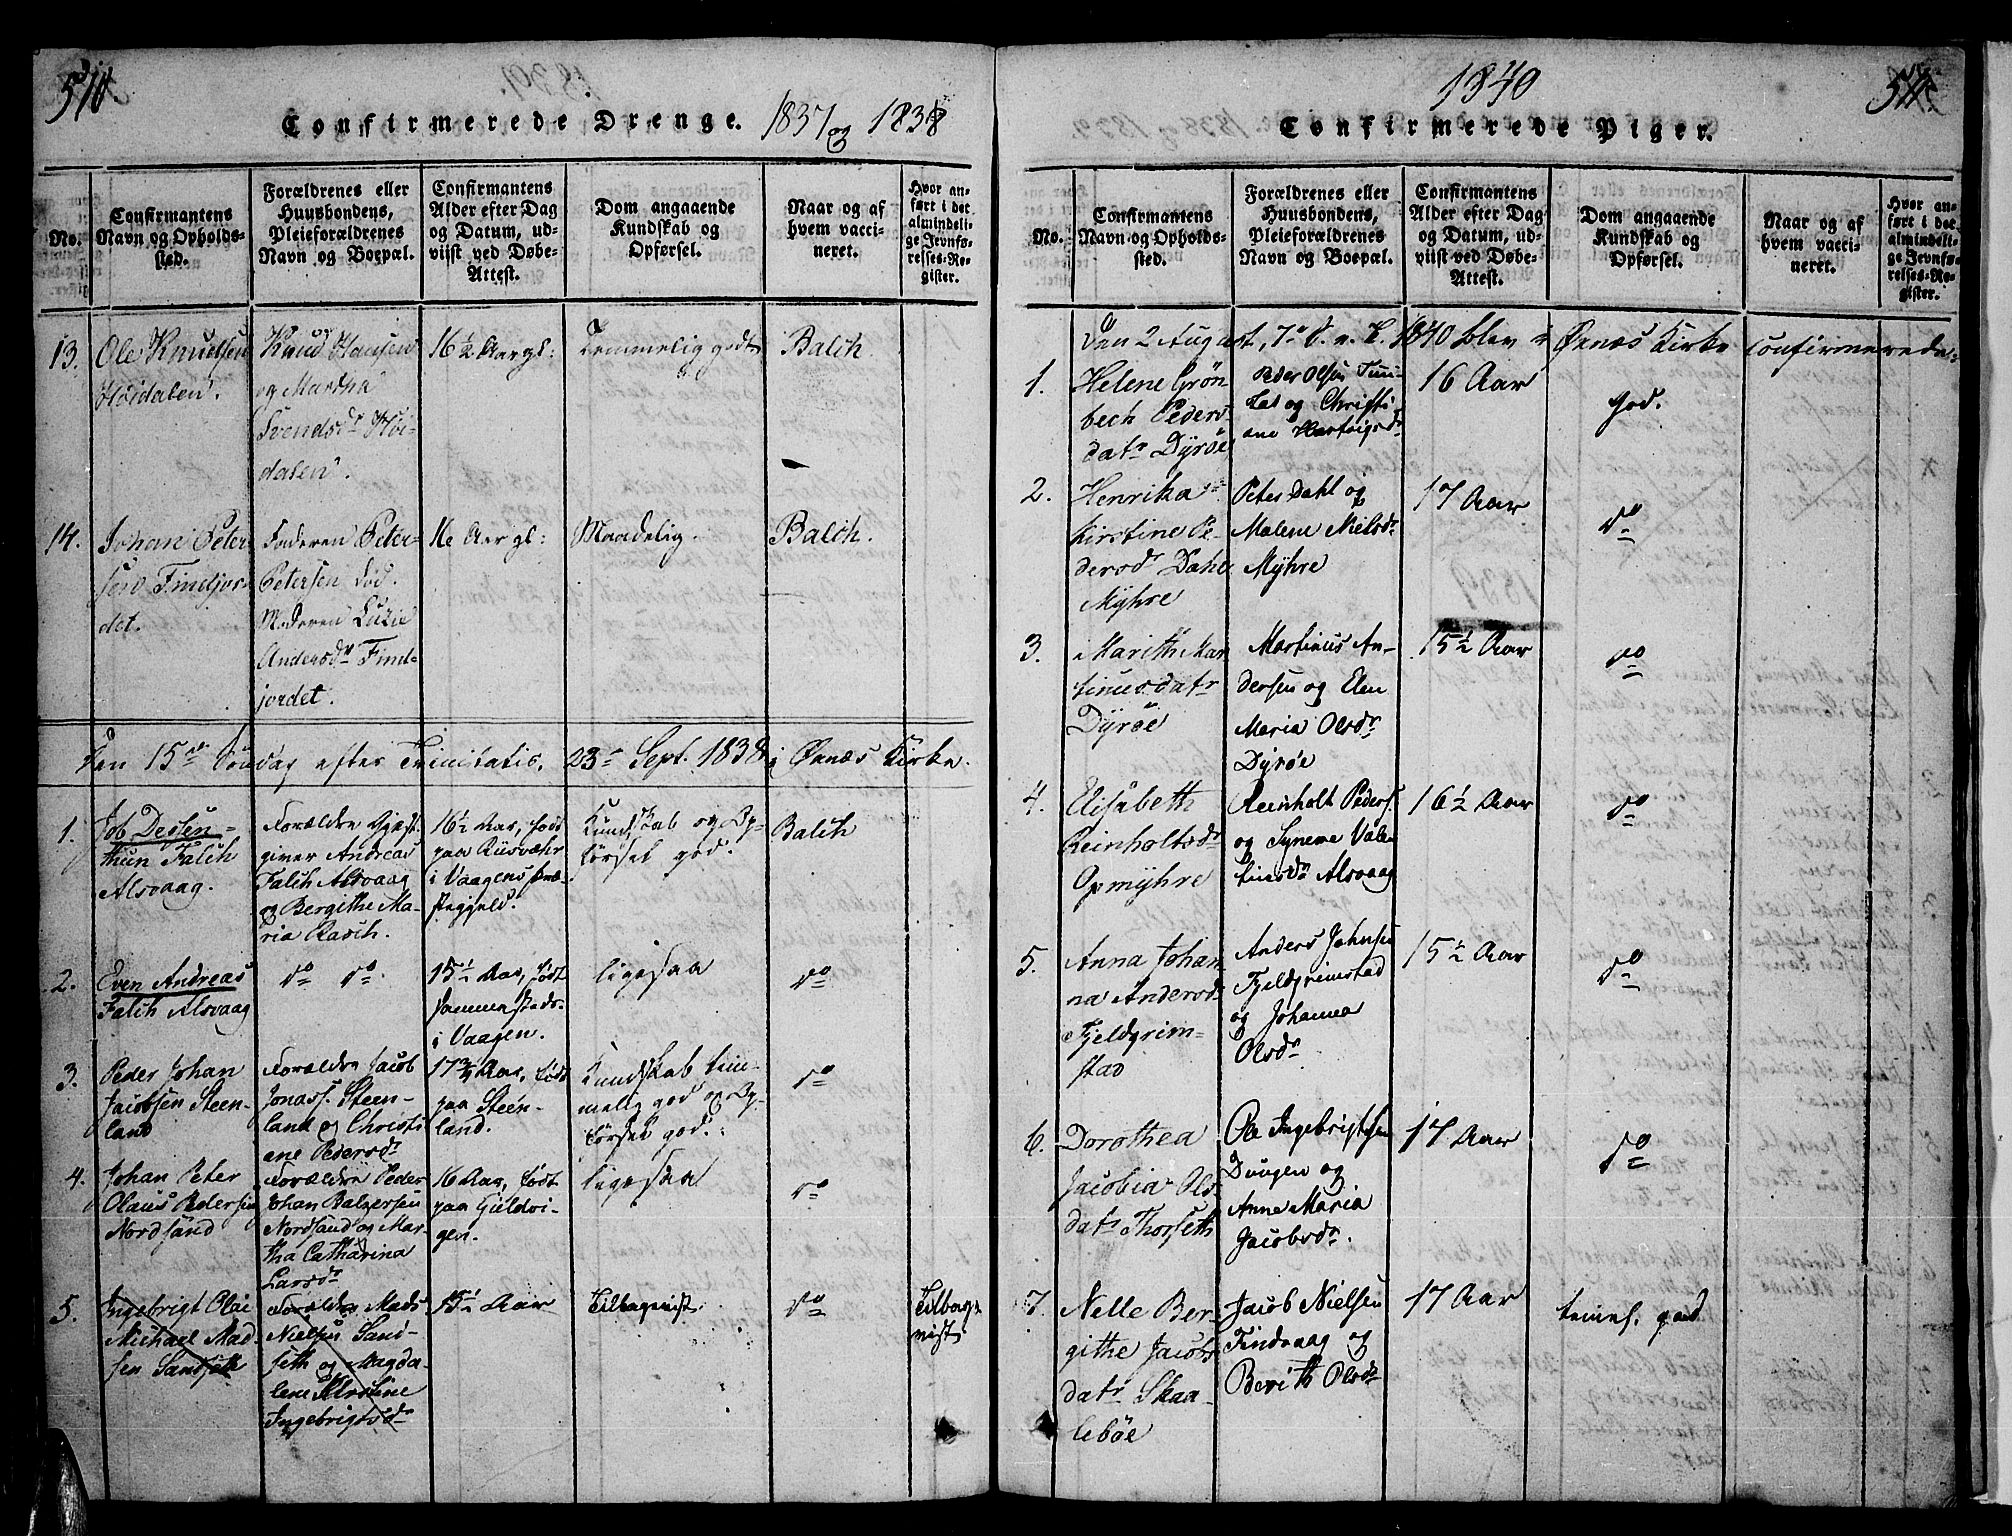 510
Confirmerede Drenge. 1837 og 1838
No.
Confirmantens
Navn og Opholds-
sted.
Forældrenes eller
Huusbondens,
Pleieforældrenes
Navn og Boepæl.
Confirmantens
Alder efter Dag
og Datum, ud-
viist ved Døbe-
Attest.
Dom angaaende
Kundskab og
Opførsel.
Naar og af
hvem vacci-
neret.
Hvor an-
ført i det
almindeli-
ge Jevnfø-
relses-Re-
gister.
13.
Ole Knudsen
Høidalen.
Knud Hansen
og Martha
Svendsdr Høi-
dalen.
16½ Aar gl:
Temmelig godt
Balch
14.
Johan Peter-
sen Findjor-
det.
Faderen Peter
Petersen død.
Moderen Luzie
Andersdr Find-
jordet.
16 Aar gl:
Maadelig.
Balch.
Den 15de Søndag efter Trinitatis, 23de Sept. 1838 i Øxnæs Kirke.
1.
Job Dessen-
thun Falch
Alsvaag.
Forældre Gjæst-
giver Andreas
Falch Alsvaag
og Bergithe Ma-
ria Rasch.
16½ Aar, født
paa Riisværhr
i Vaagens Præ-
stegjeld.
Kundskab og Op-
førsel god.
Balch
2.
Even Andreas
Falch Alsvaag
do do.
15½ Aar, født
sammensteds
i Vaagen.
ligesaa
do
3.
Peder Johan
Jacobsen Steen-
land
Forældre Jacob
Jonass. Steen-
land og Christi
ane Pedersdr
17¾ Aar, født
paa Steen-
land.
Kundskab tem-
melig god og Op-
førsel god.
do
4.
Johan Peter
Olaus Pedersen
Nordsand
Forældre Peder
Johan Balzersen
Nordsand og Mar-
tha Catharina
Larsdr
16 Aar, født
paa Gieldvi-
gen.
ligesaa
do
5.
Ingebrigt Olai
Michael Mad-
sen Sandseth
Forældre Mads
Nielsen Sand-
seth og Magda-
lene Kirstine
Ingebrigtsdr
15½ Aar
Tilbageviist.
do
Tilbage
viist
1840
511
Confirmerede Piger.
No.
Confirmantens
Navn og Opholds-
sted.
Forældrenes eller
Huusbondens,
Pleieforældrenes
Navn og Boepæl.
Confirmantens
Alder efter Dag
og Datum, ud-
viist ved Døbe-
Attest.
Dom angaaende
Kundskab og
Opførsel.
Naar og af
hvem vacci-
neret.
Hvor an-
ført i det
almindeli-
ge Jevnfø-
relses-Re-
gister.
Den 2 August, 7de S. e. T. 1840 blev i Øxnæs Kirke confirmerede:
1.
Helene Grøn
bech Peders
datr Dyrøe
Peder Olsen
og Christi
ane Hartvigsdr
16 Aar
god.
2.
Henrika
Kirstine Pe-
dersdr Dahl
Myhre
Peter Dahl og
Malene Nielsdr
Myhre
17 Aar
do
3.
Marith Mar
tinusdatr
Dyrøe
Martinus An-
dersen og Elen
Maria Olsdr
Dyrøe
15½ Aar
do
4.
Elisabeth
Reinholtsdr
Opmyhre
Reinholt Peders
og Synene Valen
tinsdr Alsvaag
16½ Aar
do
5.
Anna Johan
na Andersdr
Fjeldgrim-
stad
Anders Johnsen
Fjeldgrimstad
og Johanna
Olsdr
15½ Aar
do
6.
Dorothea
Jacobia Ols
datr Thorseth
Ole Ingebrigtsen
og
Anne Maria
Jacobsdr.
17 Aar
do
7.
Nelle Ber-
githe Jacobs
datr Skaa-
lebøe
Jacob Nielsen
Findvaag og
Berith Olsdr
17 Aar
temel. god